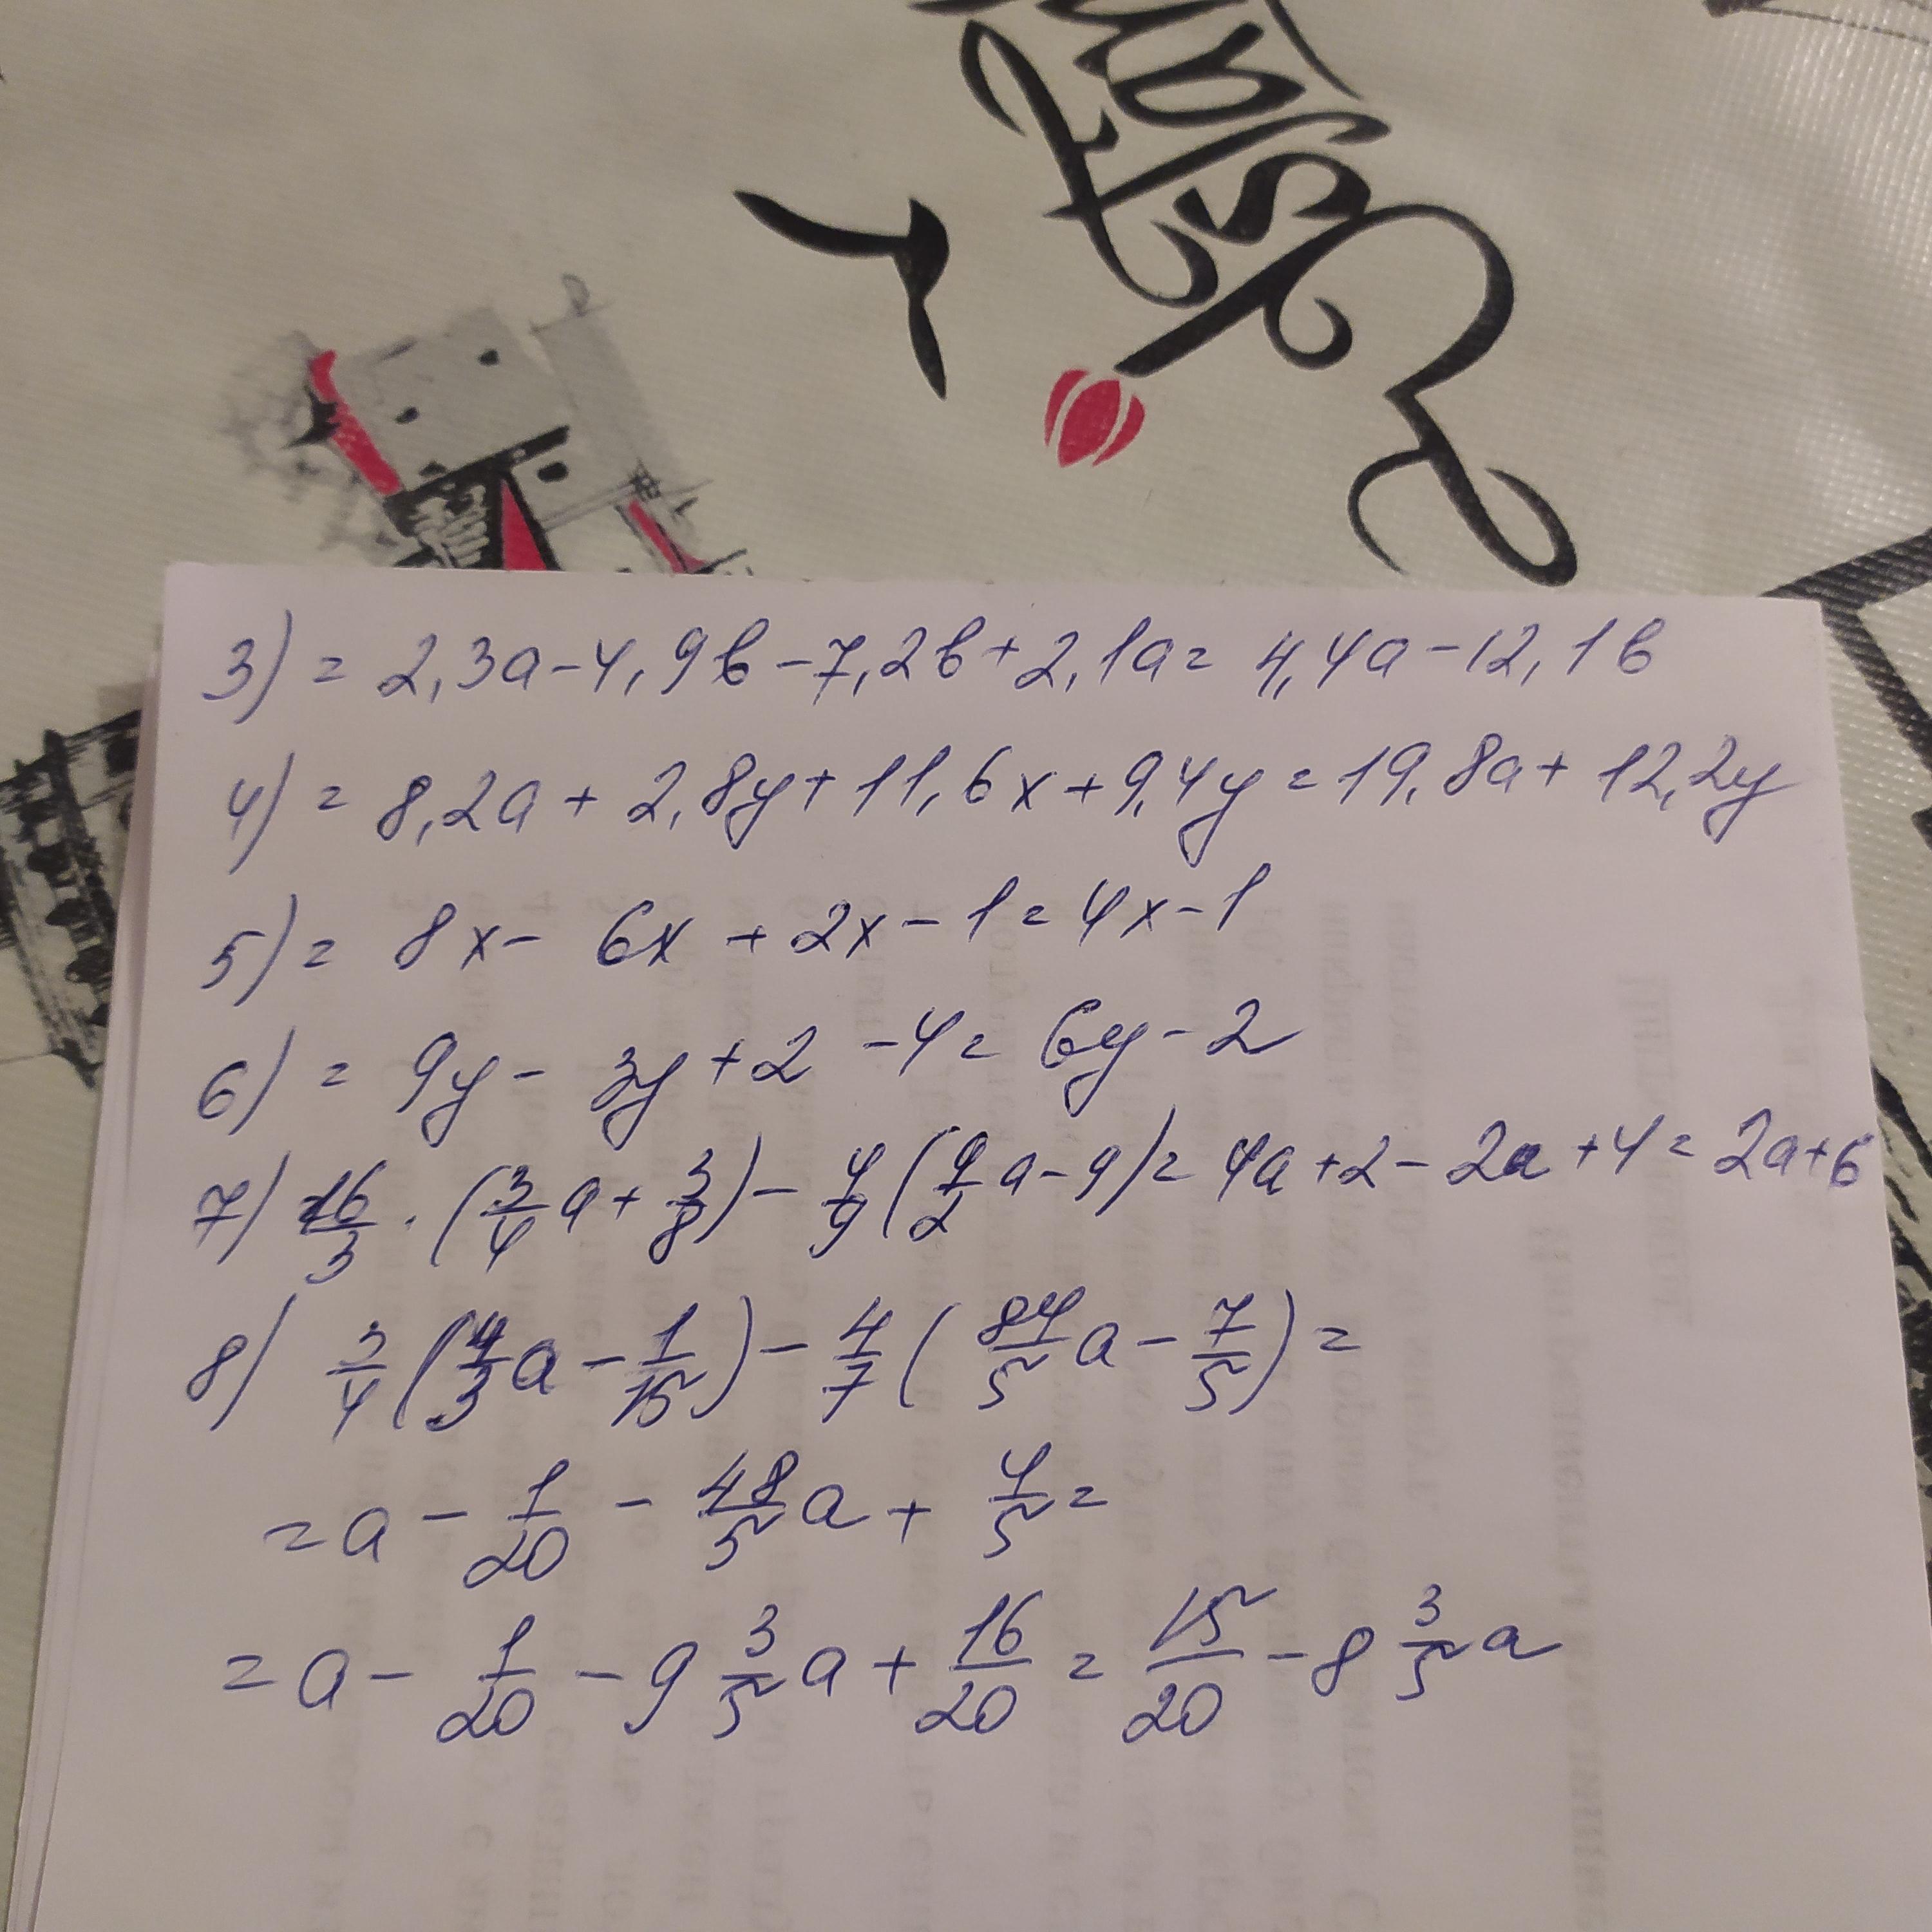 3) = 2,3a - 4,9b - 7,2b + 2,1a = 4,4a - 12,1b
4) = 8,2a + 2,8y + 11,6x + 9,4y = 19,8a + 12,2y
5) = 8x - 6x + 2x - 1 = 4x - 1
6) = 9y - 3y + 2 - 4 = 6y - 2
7) 16/3 · (3/4 a + 3/8) - 4/9 (9/2 a - 9) = 4a + 2 - 2a + 4 = 2a + 6
8) 3/4 (4/3 a - 1/15) - 4/7 (84/5 a - 7/5) =
= a - 1/20 - 48/5 a + 4/5 =
= a - 1/20 - 9 3/5 a + 16/20 = 15/20 - 8 3/5 a